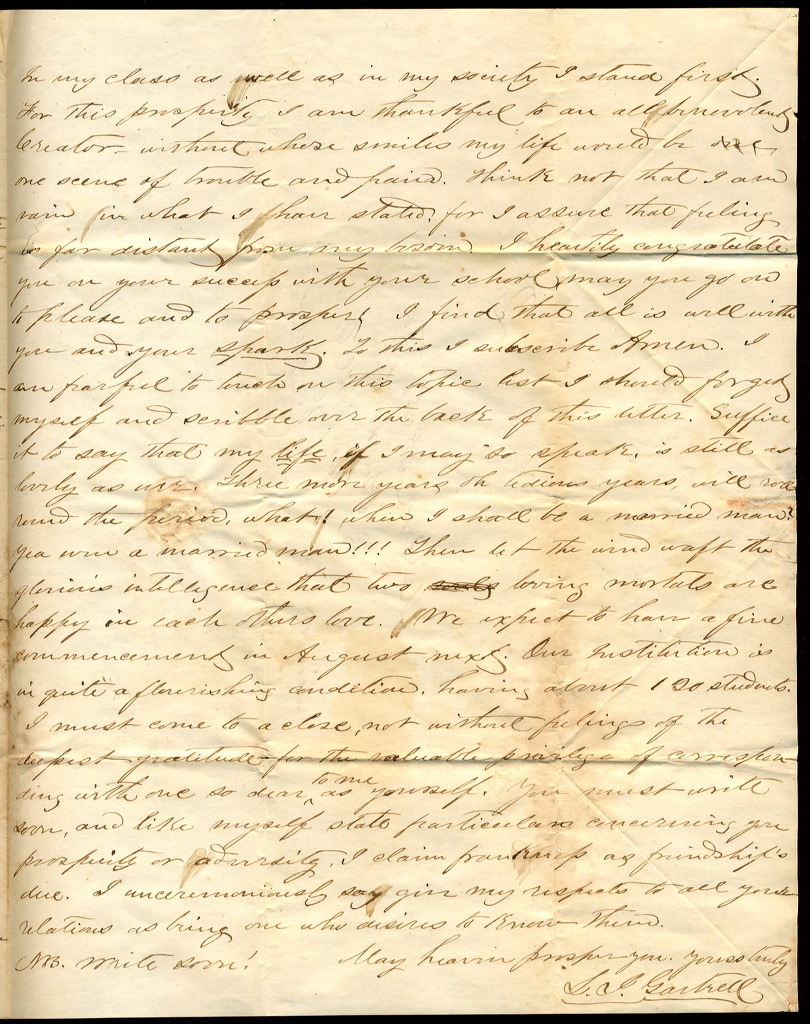 In my class as well as in my society I stand first.
For this prosperity I am thankful to an all benevolent
Creator - without whose smiles my life would be
one scene of trouble and pain. Think not that I am
vain in what I have stated, for I assure that feeling
is far distant from my bosom. I heartily congratulate
you on your success with your school, may you go on
to please and to prosper! I find that all is well with
you and your spark. To this I subscribe Amen. I
am fearful to touch on this topic lest I should forget
myself and scribble over the back of this letter. Suffice
it to say that my life, if I may so speak, is still as
lovely as ever. Three more years oh tedious years, will roll
round the period, what! when I shall be a married man?
yea even a married man!!! Then let the wind waft the
glorious intelligence that two souls loving mortals are
happy in each others love. We expect to have a fine
commencement in August next. Our Institution is
in quite a flourishing condition, having about 120 students.
I must come to a close, not without feelings of the
deepest gratitude for the valuable privilege of correspon-
ding with one so dear to me as yourself. You must write
soon, and like myself state particulars concerning you
prosperity or adversity, I claim frankness as friendship's
due. I unceremoniously say give my respects to all your
relations as being one who desires to know them.
NB. write soon! May heaven prosper you. Yours truly
L. J. Gartrell